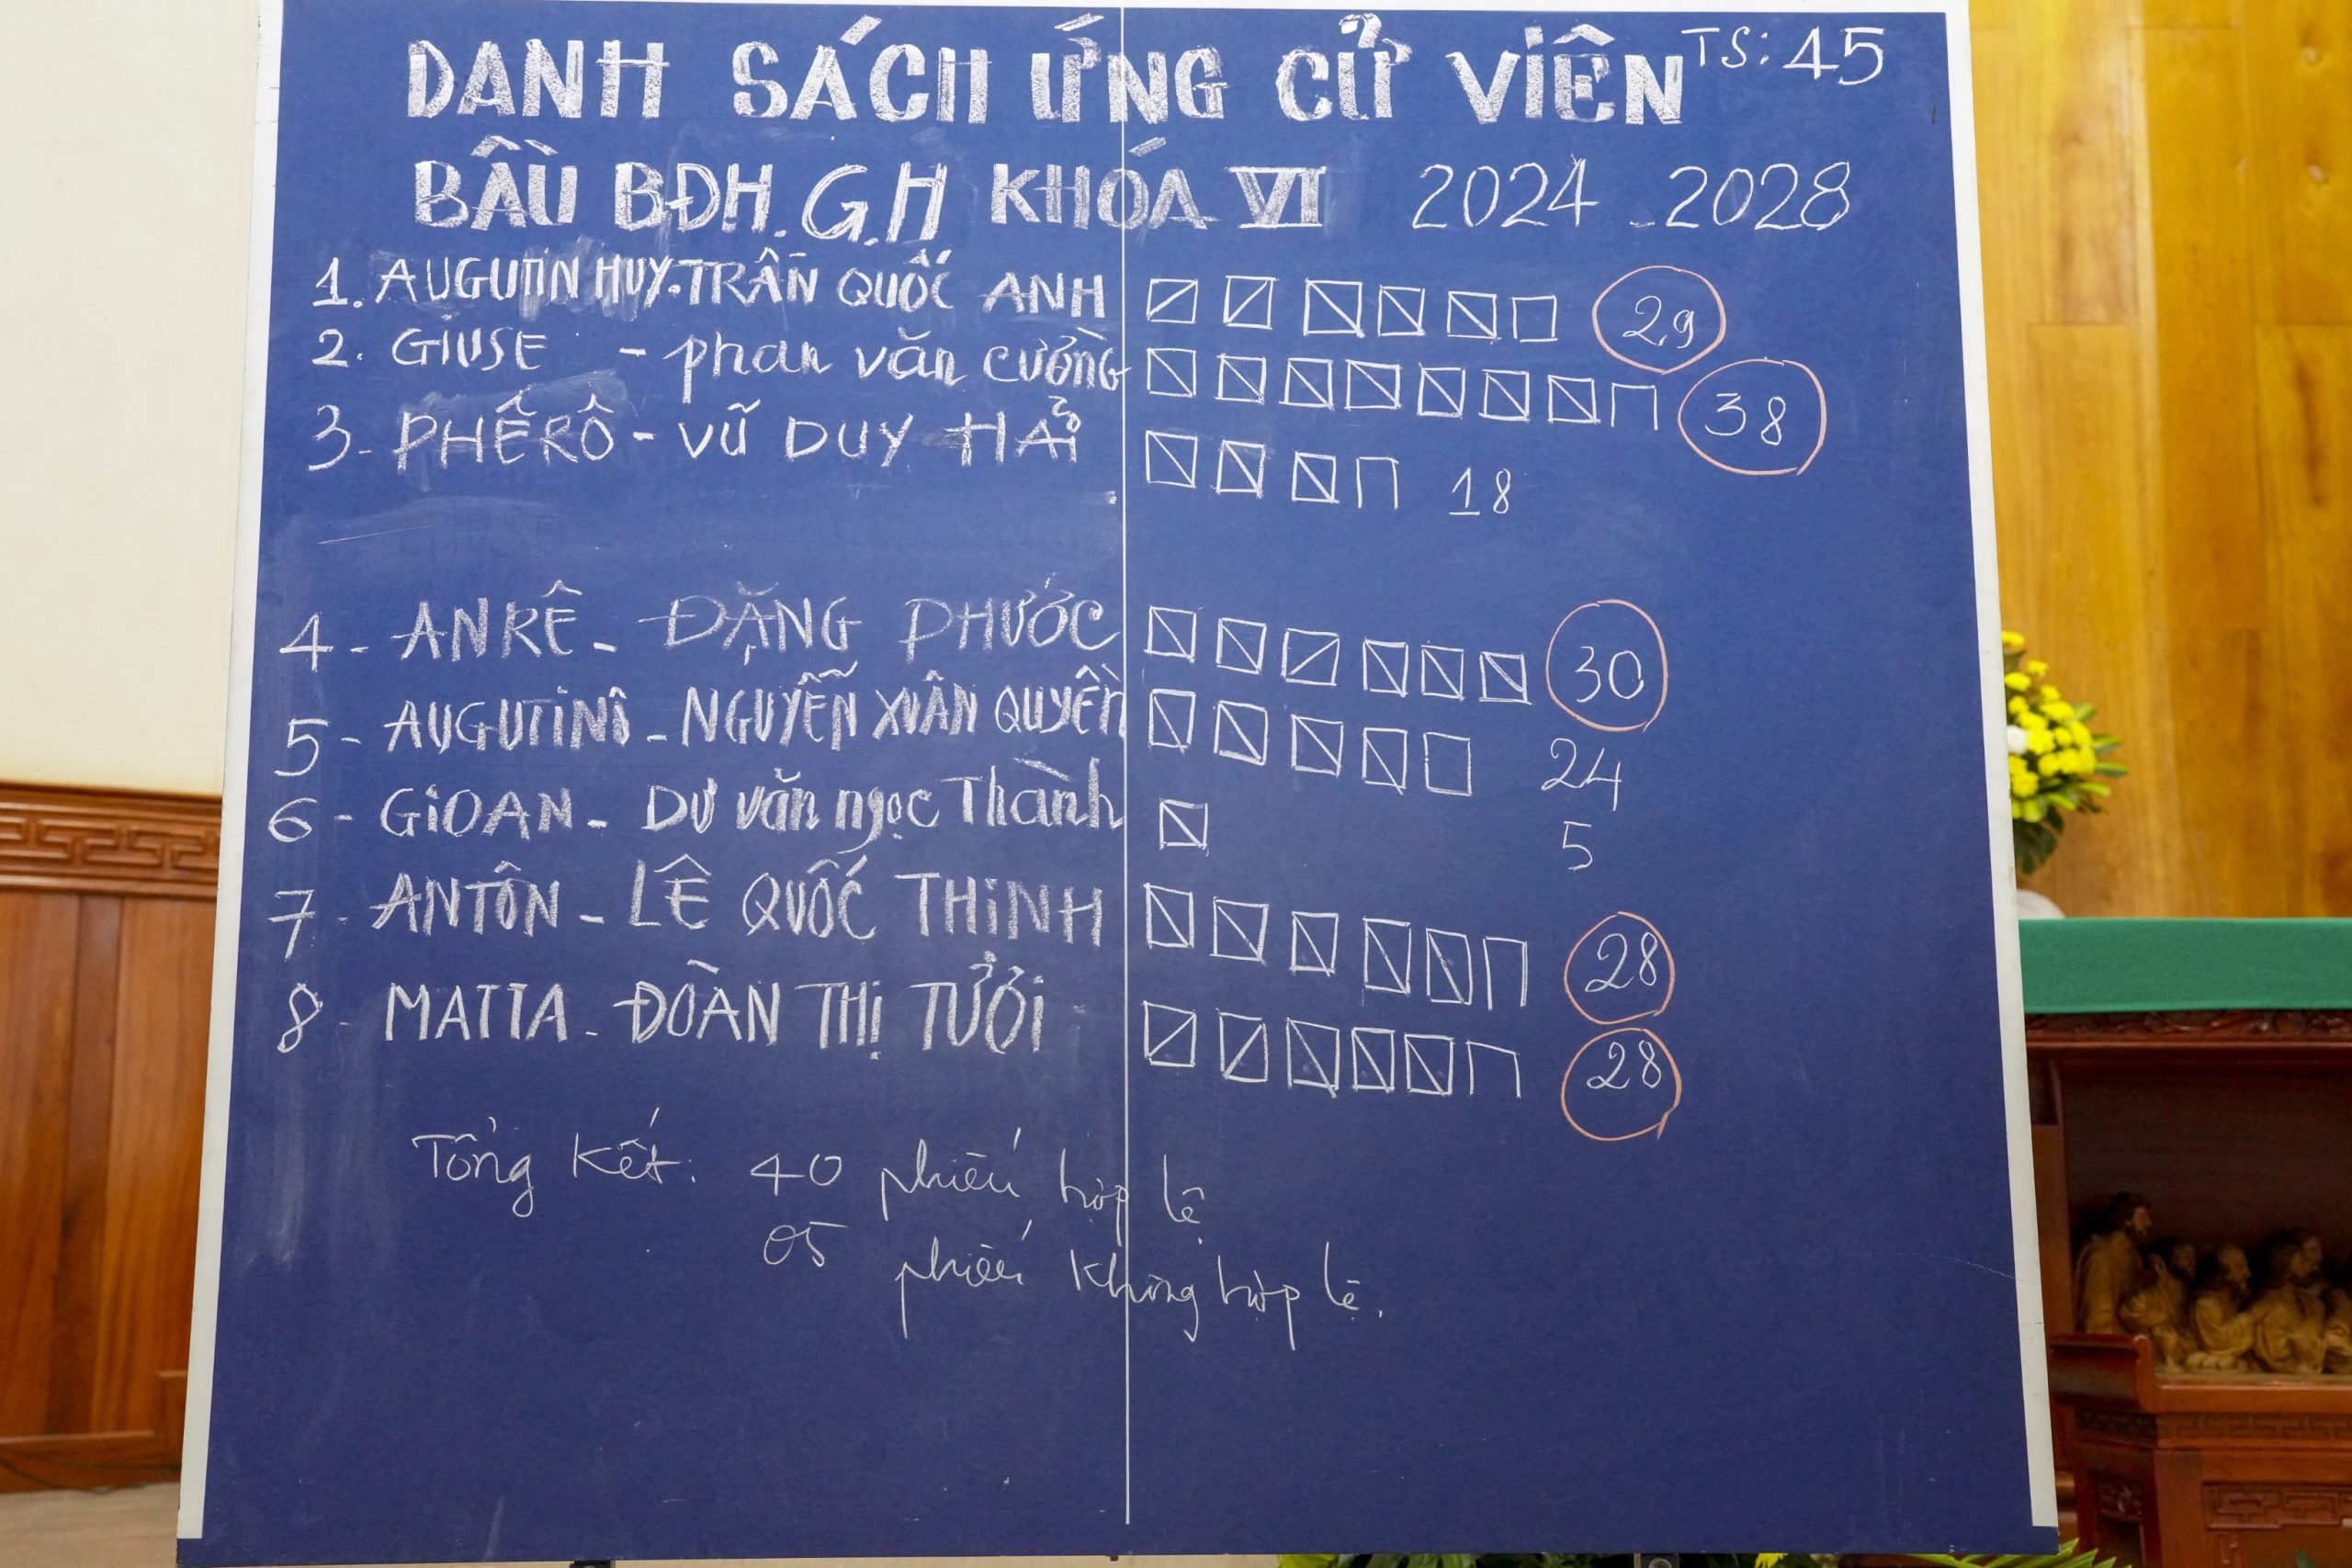 DANH SÁCH ỨNG CỬ VIÊN TS: 45
BẦU BĐH. G.H KHÓA VI 2024 - 2028
1. AUGUTIN HUY. TRẦN QUỐC ANH 29
2. GIUSE - phan văn cường 38
3 - PHÊRÔ - VŨ DUY HẢI 18
4 - ANRÊ - ĐẶNG PHƯỚC 30
5 - AUGUTINÔ - NGUYỄN XUÂN QUYỀN 24
6 - GIOAN - Dư văn ngọc Thành 5
7 - ANTÔN - LÊ QUỐC THINH 28
8 - MATTA - ĐOÀN THỊ TƯỞI 28
Tổng Kết: 40 phiếu hợp lệ
05 phiếu không hợp lệ.